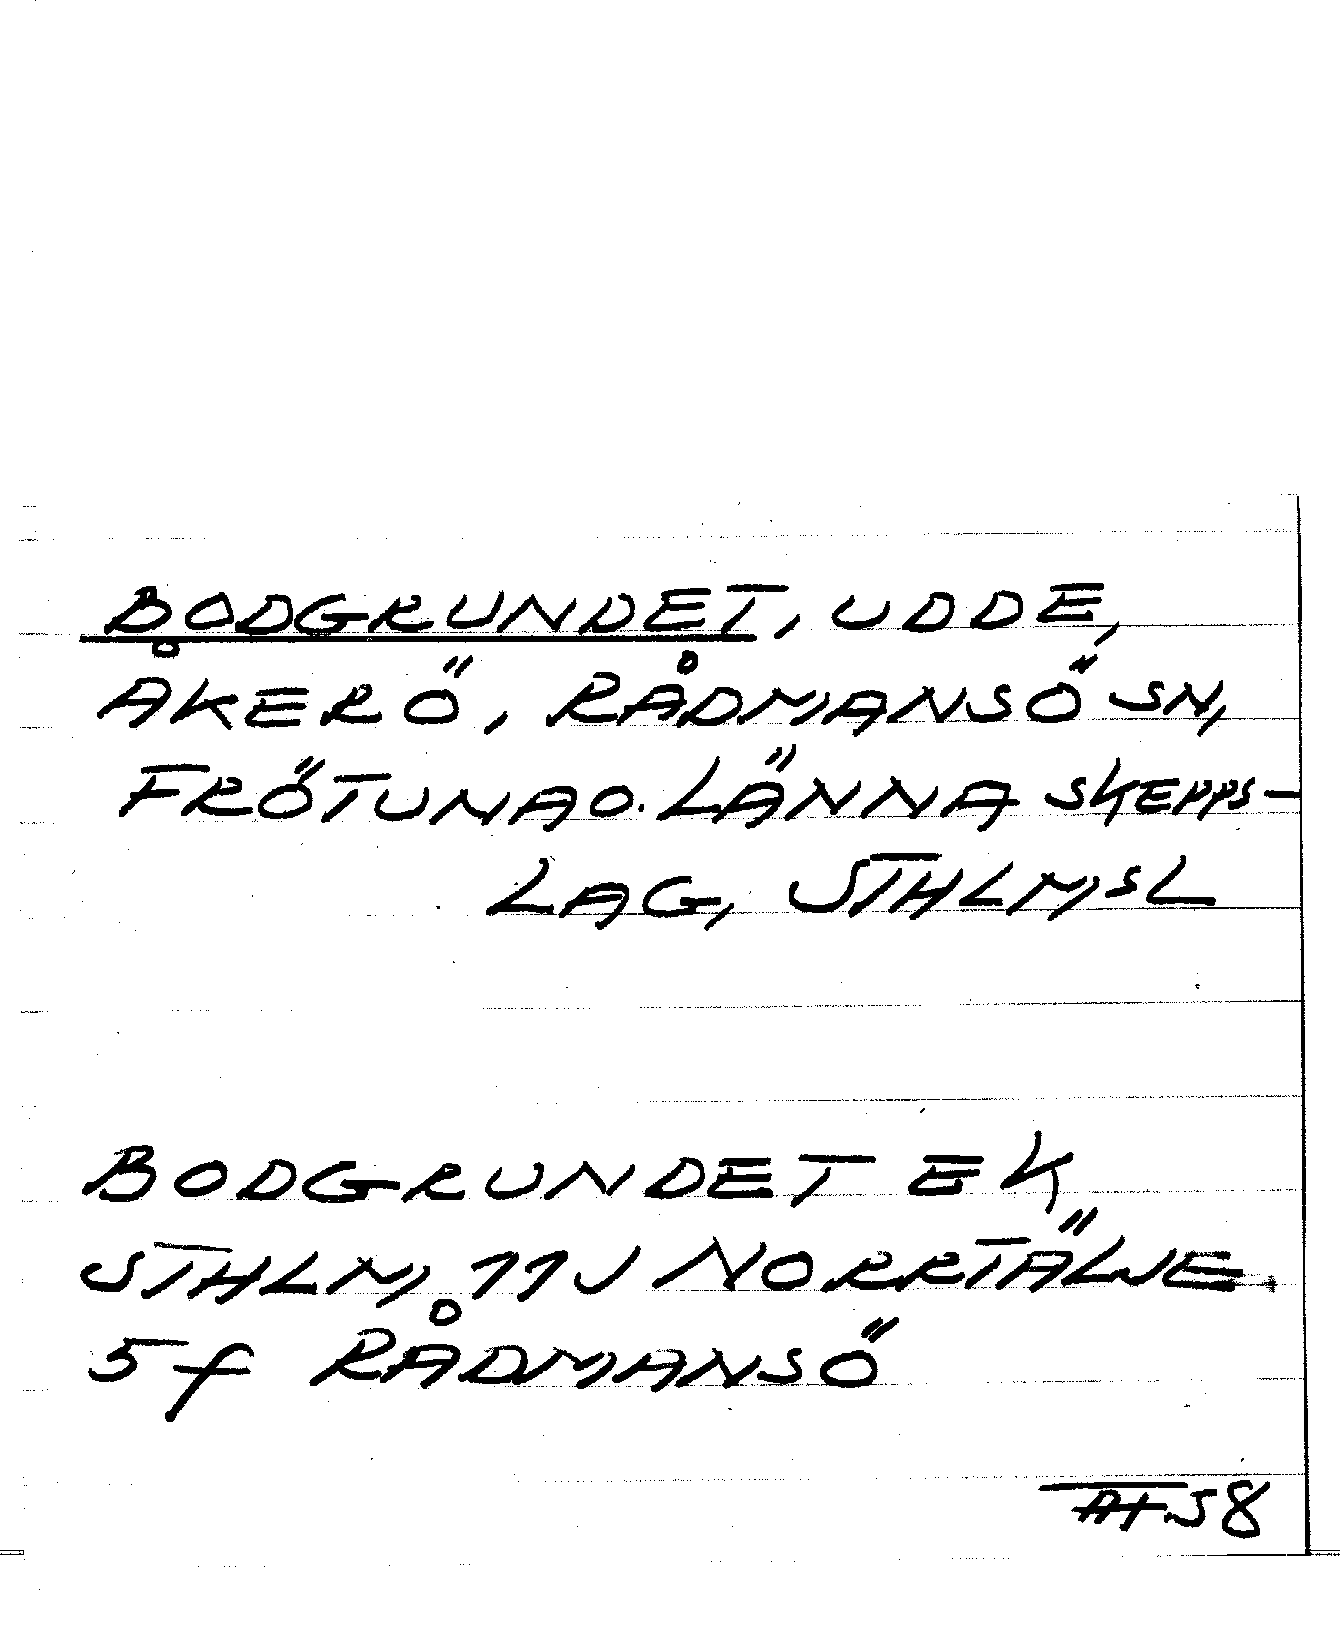 BODGRUNDET, UDDE,
ÅKERÖ, RÅDMANSÖ SN,
FRÖTUNA O. LÄNNA SKEPPS-
LAG, STHLMSL
BODGRUNDET EK
STHLM, 11J NORRTÄLJE
5f RÅDMANSÖ
58